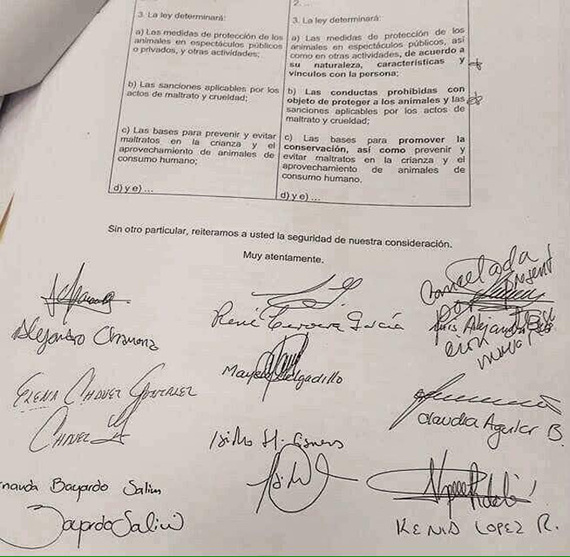 2. ...
3. La ley determinará:
a) Las medidas de protección de los
animales en espectáculos públicos
o privados, y otras actividades;
b) Las sanciones aplicables por los
actos de maltrato y crueldad;
c) Las bases para prevenir y evitar
maltratos en la crianza y el
aprovechamiento de animales de
consumo humano;
d) y e) ...
3. La ley determinará:
a) Las medidas de protección de los
animales en espectáculos públicos, así
como en otras actividades, de acuerdo a
su naturaleza, características y
vínculos con la persona;
b) Las conductas prohibidas con
objeto de proteger a los animales y las
sanciones aplicables por los actos de
maltrato y crueldad;
c) Las bases para promover la
conservación, así como prevenir y
evitar maltratos en la crianza y el
aprovechamiento de animales de
consumo humano.
d) y e) ...
Sin otro particular, reiteramos a usted la seguridad de nuestra consideración.
Muy atentamente.
Cancelada
por
Luis
Alejandro
René García
Mayela Delgadillo
ELENA CHÁVEZ GONZÁLEZ
CHAVEZ
Claudia Aguilar B.
Bayardo Salim
BayardoSalim
KENIA LOPEZ R.